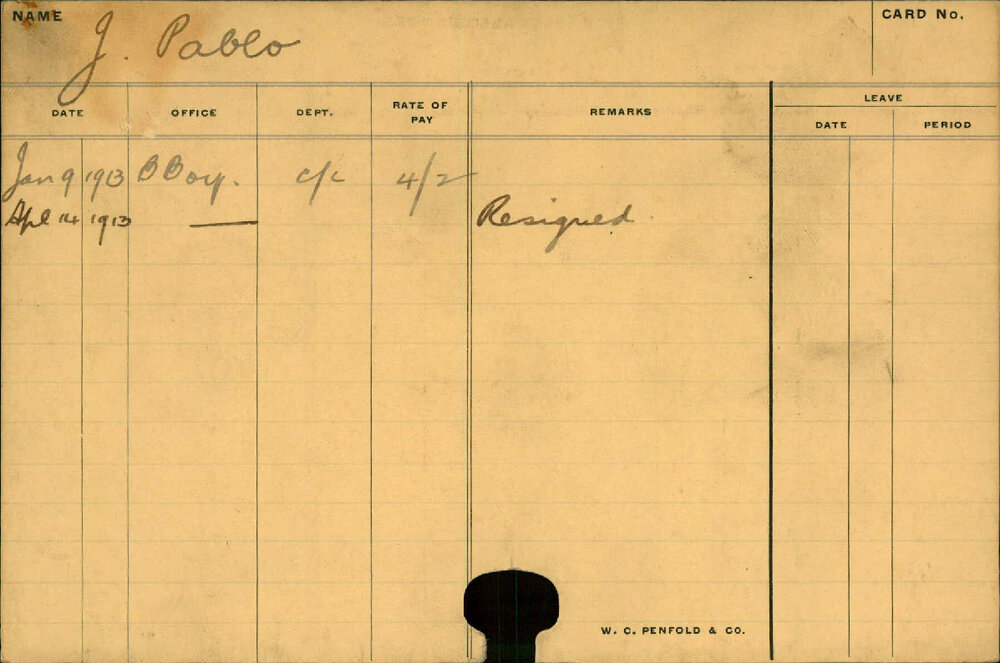 NAME J. Pablo CARD No.
DATE OFFICE DEPT. RATE OF PAY REMARKS LEAVE
DATE PERIOD
Jan 9 1913 B Boy. c/c 4/2
Apl 14 1913 — Resigned.
W. C. PENFOLD & CO.